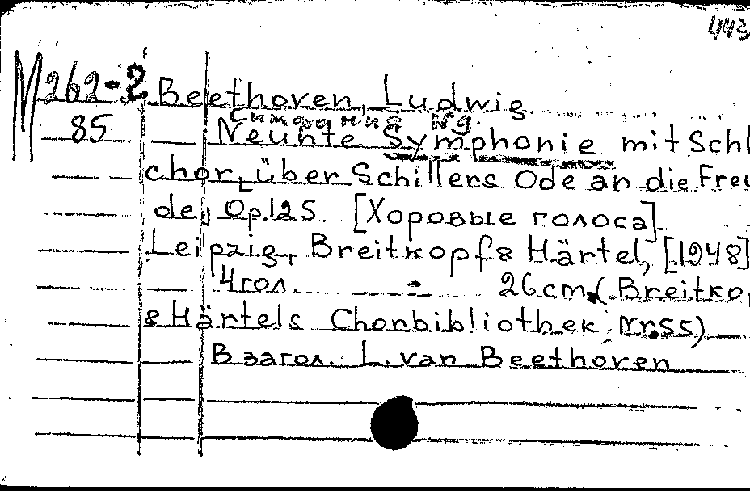 443
М262-2 Beethoven, Ludwig
Симфония №9.
85 Neunte Symphonie mit Schl
chor, über Schillers Ode an die Freu
de, Op.125. [Хоровые голоса].
Leipzig, Breitkopf & Härtel, [1948]
4гол. 26cm. (Breitko
& Härtels Chorbibliothek, Nr.55)
В загол. L. van Beethoven